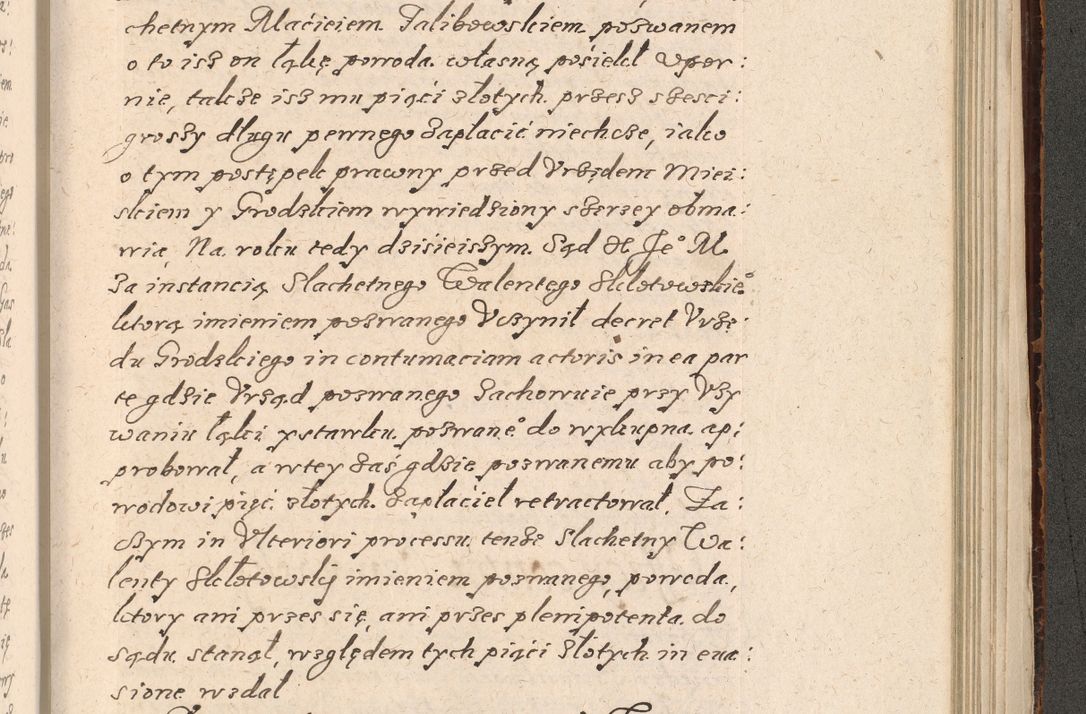 chetnym Maćieiem Jalibowskiem pozwanem
o to isz on łąkę powoda własną pośiekł Vpor:
nie, takze isz mu piąci złotych przesz szesci:
groszy długu pewnego zapłacić niechcze, iako
o tym postępek prawny przed Vrzędem Miei:
skiem y Grodzkiem wywiedziony szerzey obma:
wia, Na roku tedy dzisieiszym Sąd
za instancią Slachetnego Walentego Skłotowskie°
ktorą imieniem pozwanego Vczynił decret Vrzę:
du Grodzkiego in contumaciam actoris in ea par
te gdzie Vrząd pozwanego Zachowuie przy Vzy
waniu łąki y stawku pozwane° do wykupna ap:
probował, a w tey zaś gdzie pozwanemu aby po:
wodowi pięć złotych zapłacieł retractował, Za:
czym in Vlteriori processu tenze Slachetny Wa:
lenty Skłotowskij imieniem pozwanego, powoda,
ktory ani przes się, ani przes plenipotenta do
sądu stanął, względem tych piąci złotych in eua:
sione wzdał